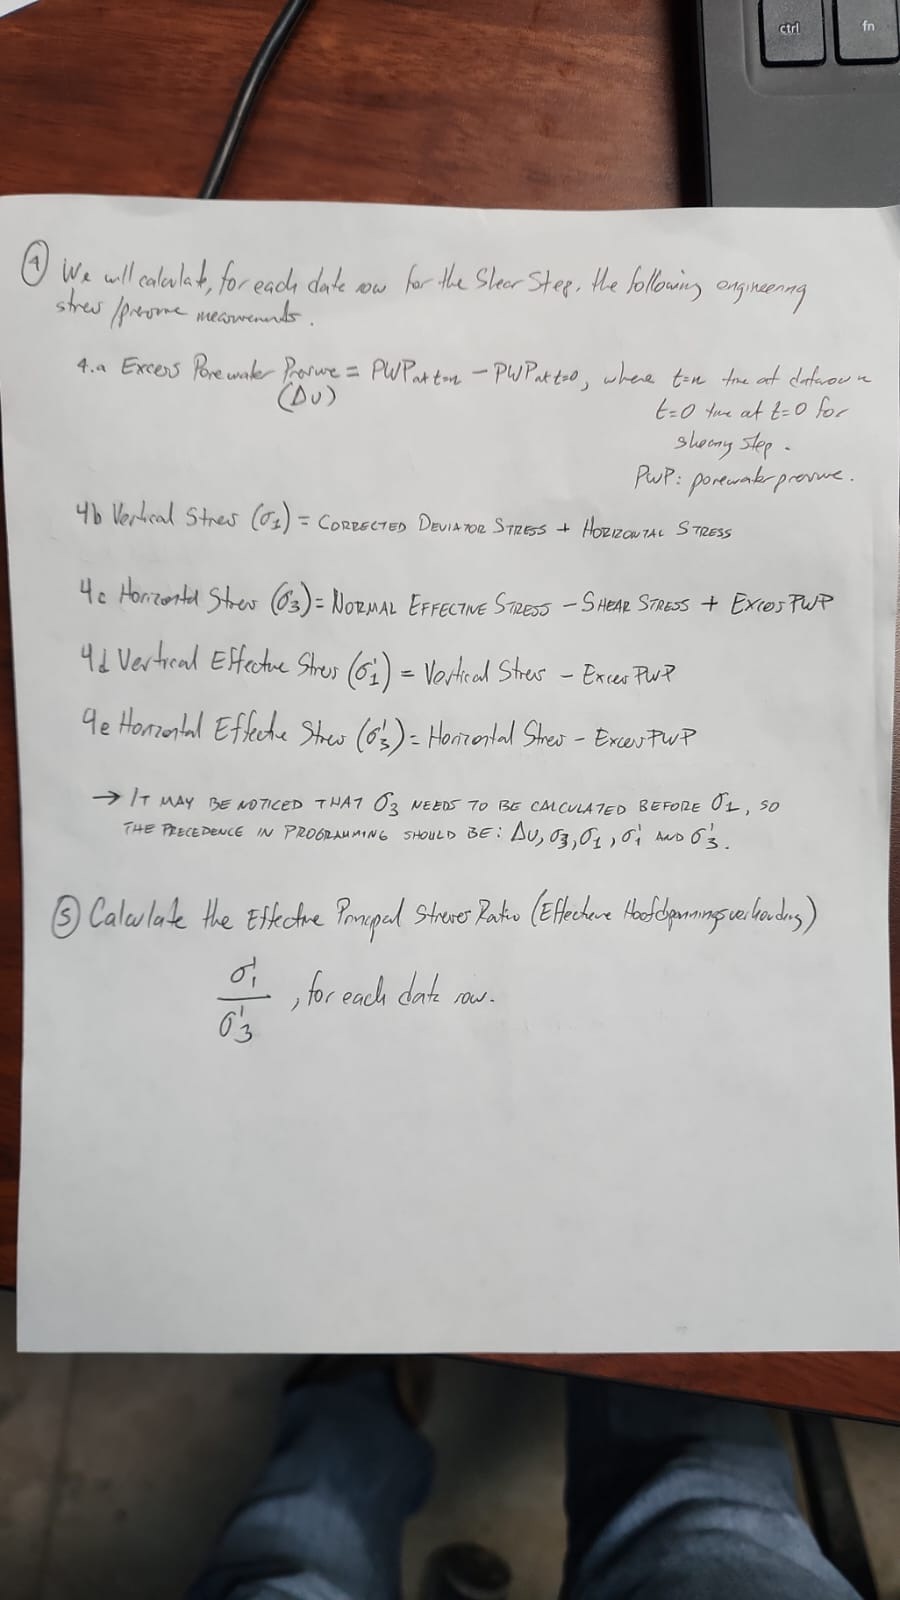 ctrl
fn
④ We will calculate, for each data row for the Shear Step, the following engineering
stress/pressure measurements.
4.a Excess Porewater Pressure = PWP at t=n - PWP at t=0, where t=n time at datarow n
(ΔU)
t=0 time at t=0 for
shearing step.
PWP: porewater pressure.
4b Vertical Stress (σ1) = CORRECTED DEVIATOR STRESS + HORIZONTAL STRESS
4c Horizontal Stress (σ3) = NORMAL EFFECTIVE STRESS - SHEAR STRESS + Excess PWP
4d Vertical Effective Stress (σ'1) = Vertical Stress - Excess PWP
4e Horizontal Effective Stress (σ'3) = Horizontal Stress - Excess PWP
→ IT MAY BE NOTICED THAT σ3 NEEDS TO BE CALCULATED BEFORE σ1, SO
THE PRECEDENCE IN PROGRAMMING SHOULD BE: ΔU, σ3, σ1, σ'1 AND σ'3.
⑤ Calculate the Effective Principal Stresses Ratio (Effectieve Hoofdspanningsverhouding)
σ'1
, for each data row.
σ'3